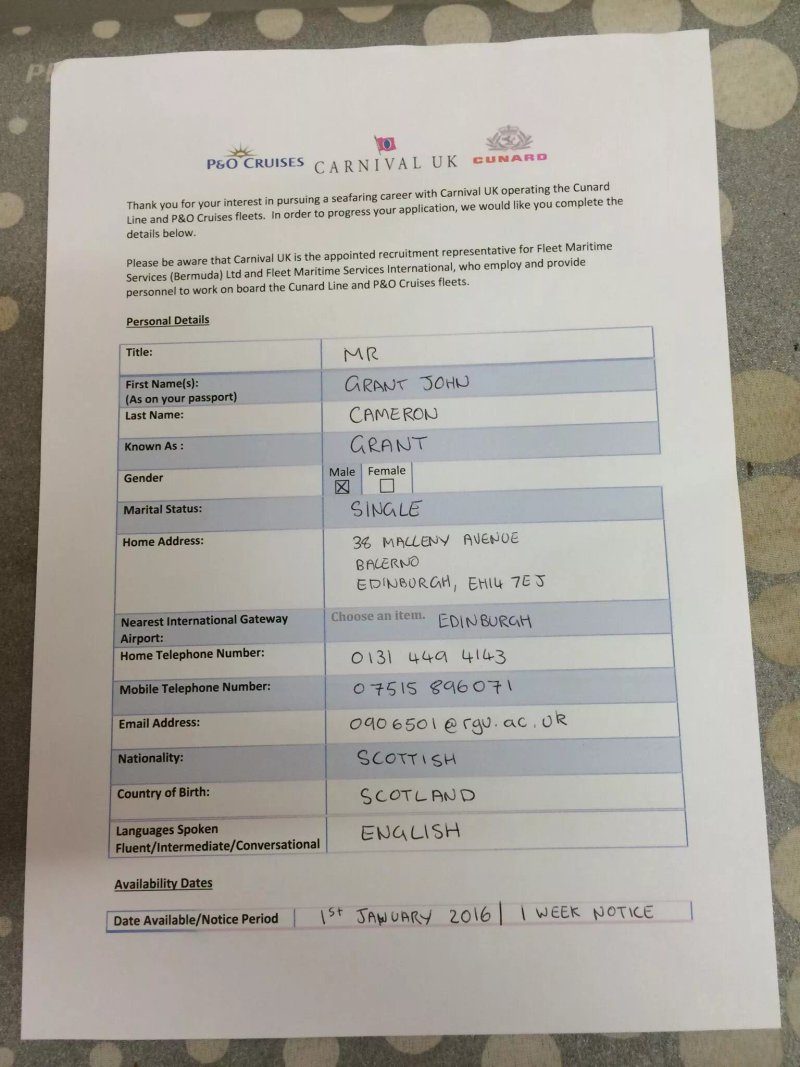 P&O CRUISES CARNIVAL UK CUNARD
Thank you for your interest in pursuing a seafaring career with Carnival UK operating the Cunard
Line and P&O Cruises fleets. In order to progress your application, we would like you complete the
details below.
Please be aware that Carnival UK is the appointed recruitment representative for Fleet Maritime
Services (Bermuda) Ltd and Fleet Maritime Services International, who employ and provide
personnel to work on board the Cunard Line and P&O Cruises fleets.
Personal Details
Title: MR
First Name(s): GRANT JOHN
(As on your passport)
Last Name: CAMERON
Known As : GRANT
Gender Male Female
Marital Status: SINGLE
Home Address: 38 MALLENY AVENUE
BALERNO
EDINBURGH, EH14 7EJ
Nearest International Gateway Choose an item. EDINBURGH
Airport:
Home Telephone Number: 0131 449 4143
Mobile Telephone Number: 07515 896071
Email Address: 0906501@rgu.ac.uk
Nationality: SCOTTISH
Country of Birth: SCOTLAND
Languages Spoken ENGLISH
Fluent/Intermediate/Conversational
Availability Dates
Date Available/Notice Period 1st JANUARY 2016 | 1 WEEK NOTICE